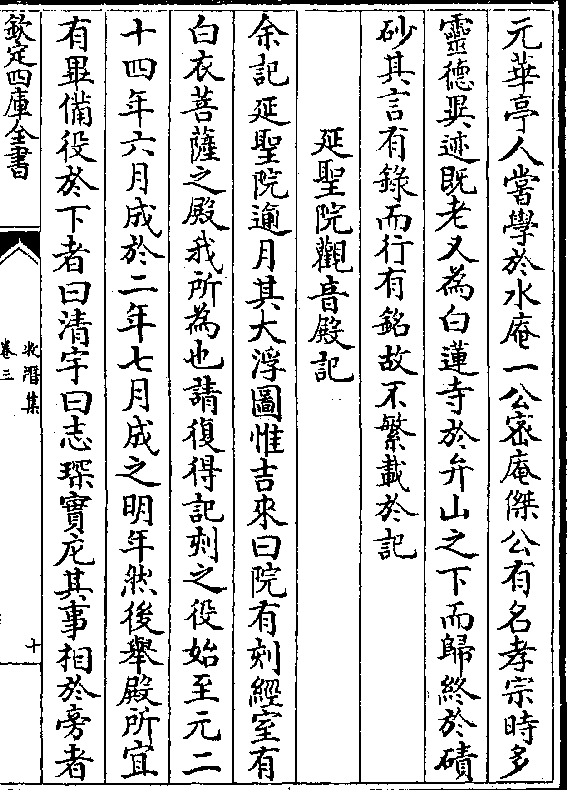 元華亭人嘗學於水庵一公宻庵傑公有名孝宗時多
靈德異迹既老又為白蓮寺於弁山之下而歸終於磧
砂其言有錄而行有銘故不繁載於記
延聖院觀音殿記
余記延聖院逾月其大浮圖惟吉來曰院有刻經室有
白衣菩薩之殿我所為也請復得記刻之役始至元二
十四年六月成於二年七月成之明年然後舉殿所宜
有畢備役於下者曰清宇曰志琛實庀其事相於旁者
欽定四庫全書
牧潛集
卷三
十